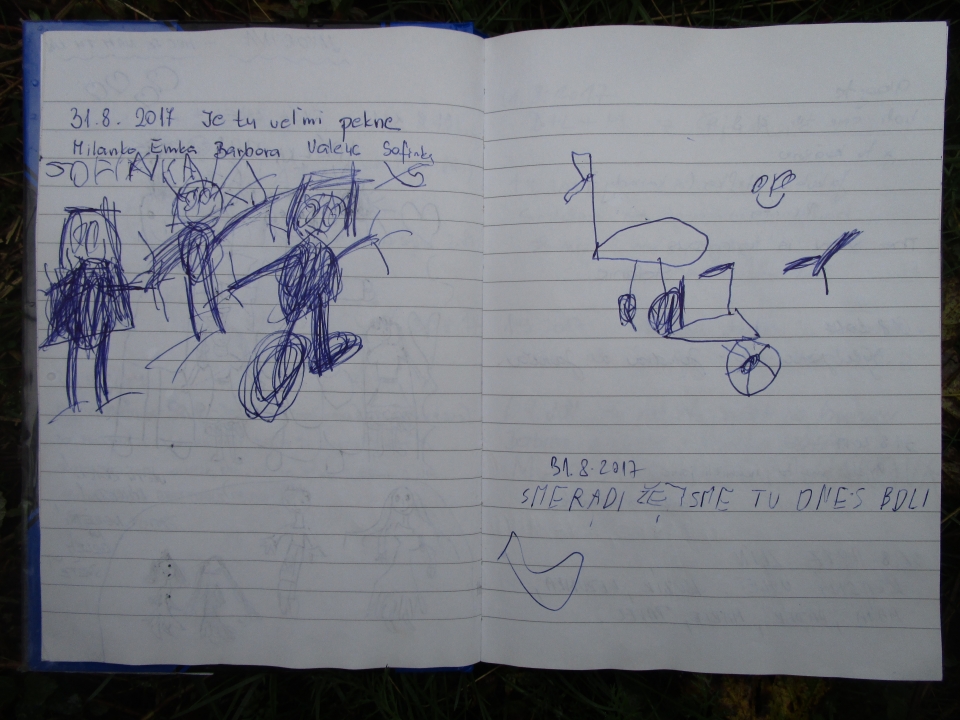 31.8. 2017 Je tu veľmi pekne
Milanko Emka Barbora Sofinka
SOFINKA
31.8.2017
SME RADI ŽE JSME TU DNES BOLI